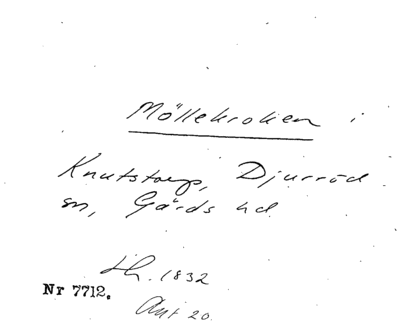 Möllekroken i
Knutstorp, Djurröd
sn, Gärds hd
Lh. 1832
Nr 7712.
Ant 20.